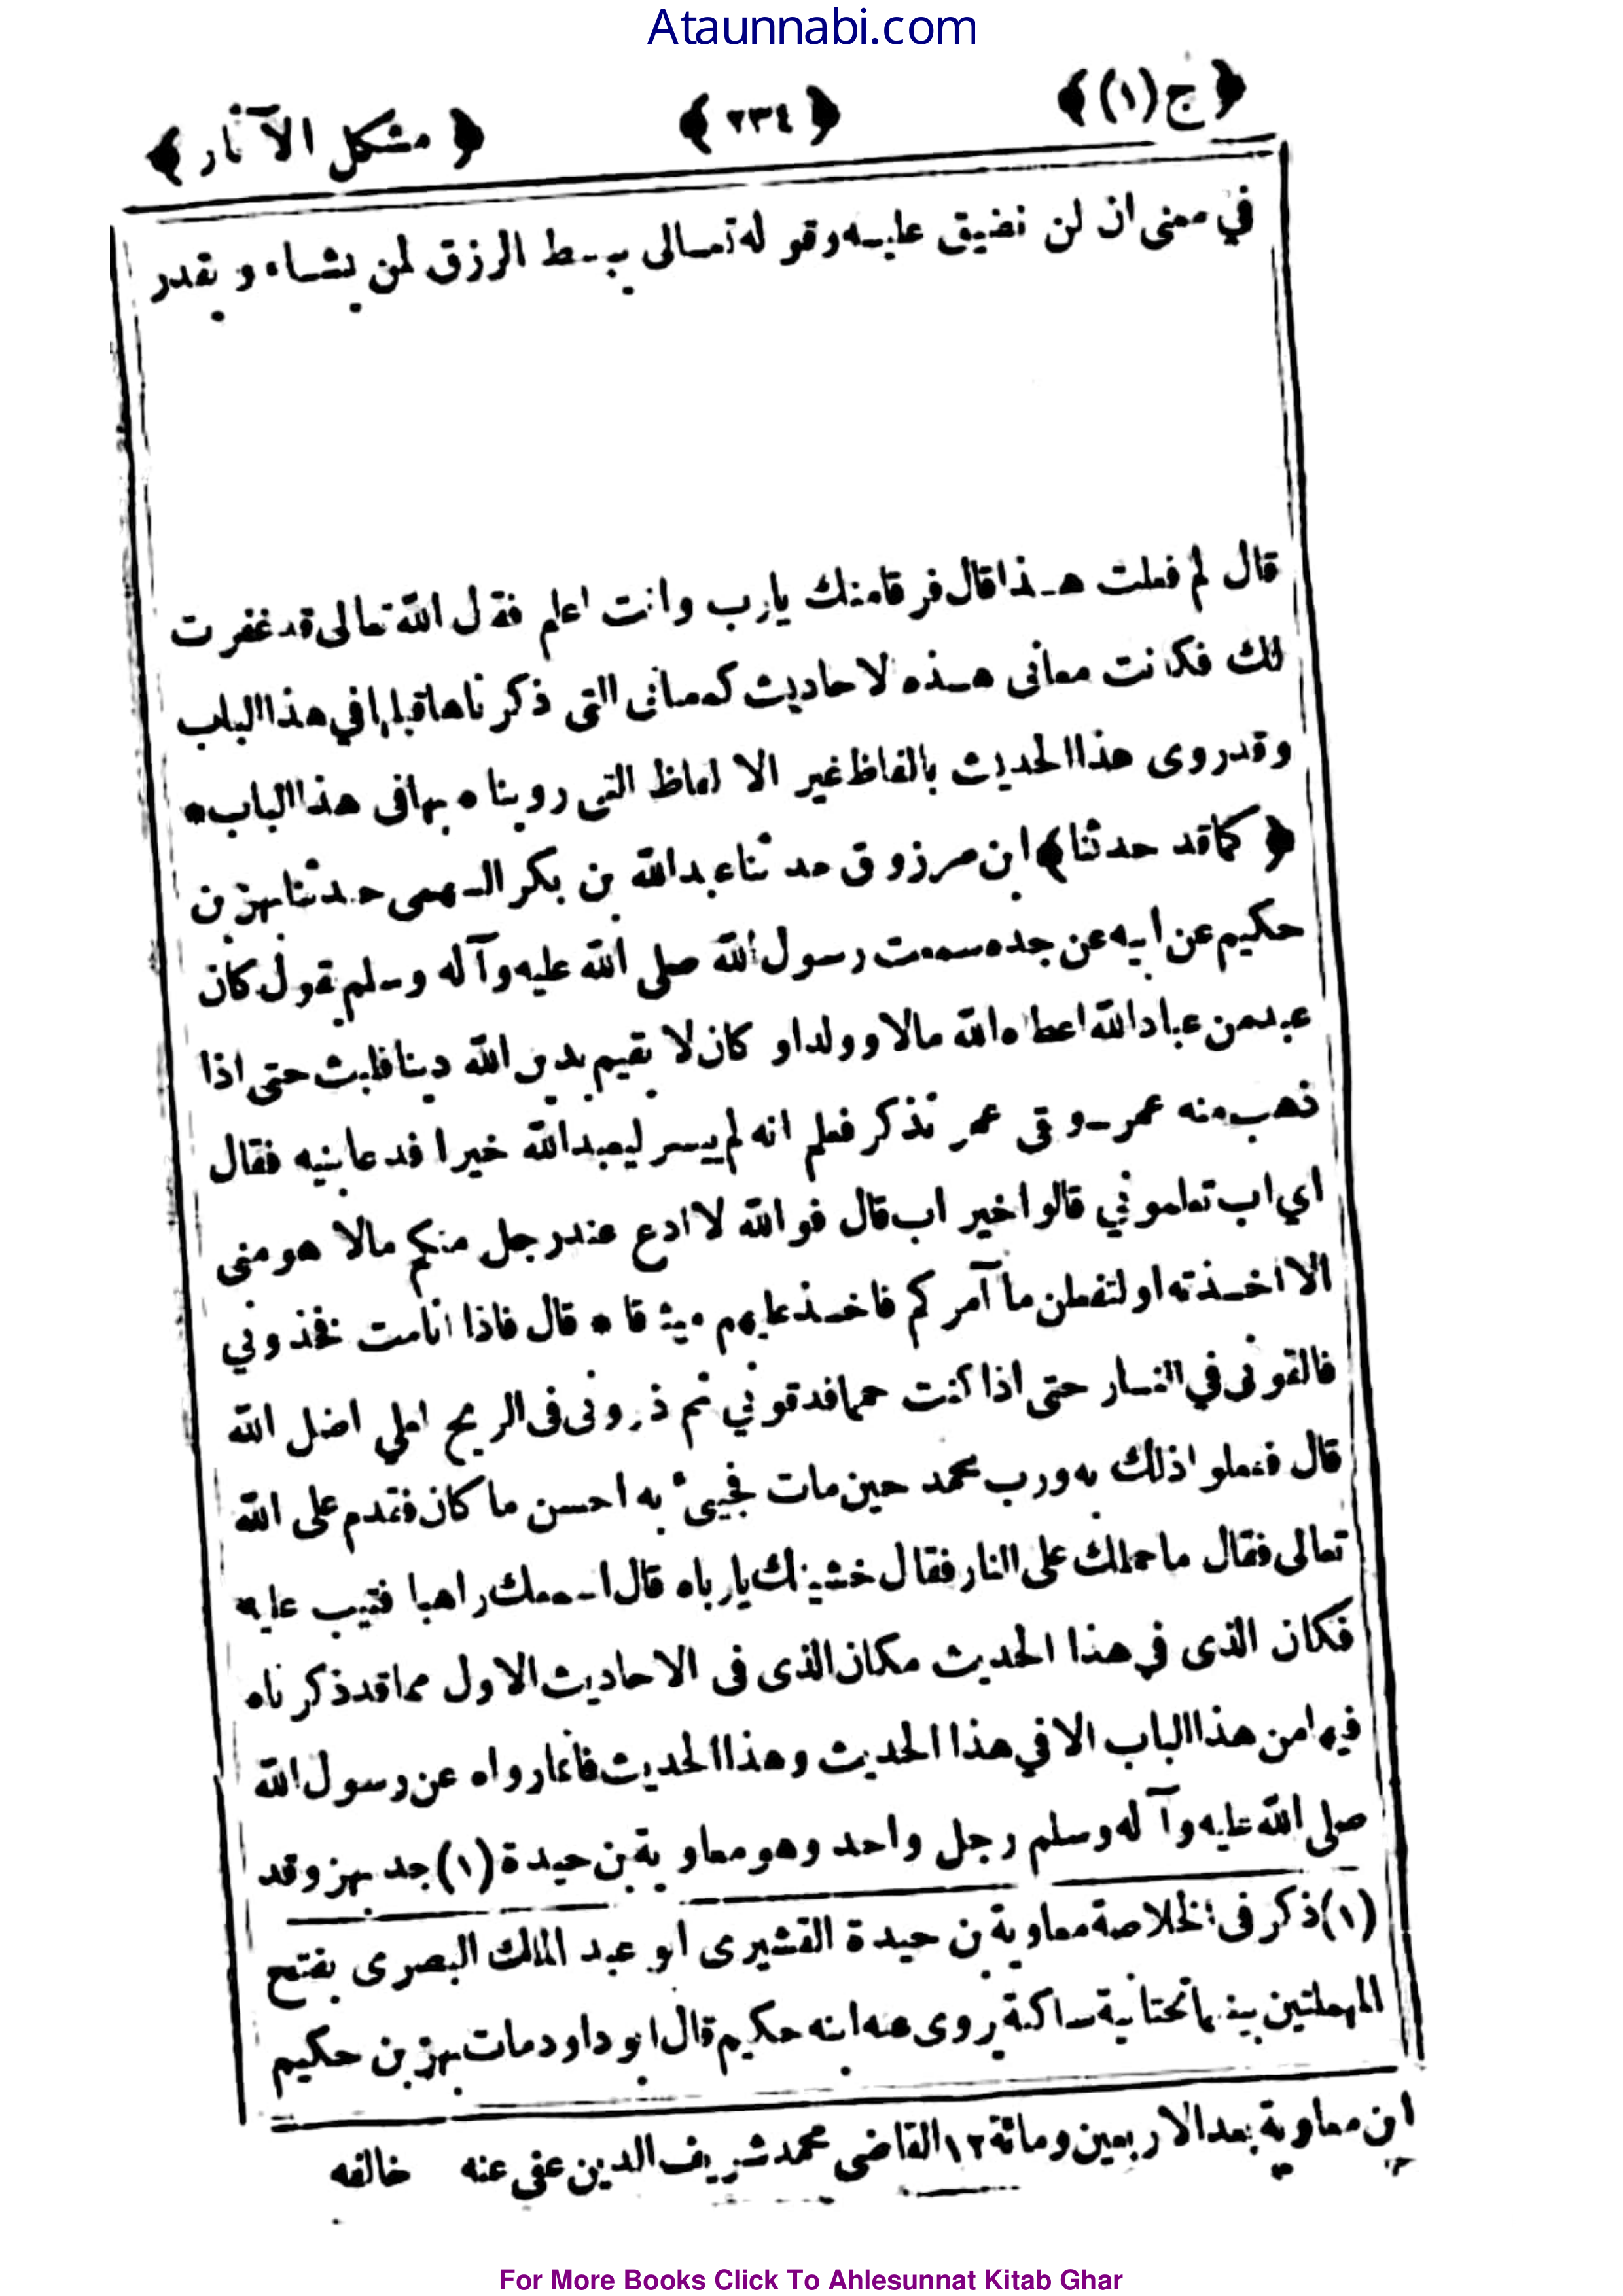 Ataunnabi.com
﴿ ج (١) ﴾ ﴿ ٢٣٤ ﴾ ﴿ مشكل الآثار ﴾
في معنى ان لن نضيق عليه وقوله تعالى يبسط الرزق لمن يشاء ويقدر
قال لم فعلت هذا قال فرقا منك يارب وانت اعلم فقال الله تعالى قد غفرت
لك فكانت معانى هذه لاحاديث كمعانى التى ذكرناها قبلها في هذا الباب
وقد روى هذا الحديث بالفاظ غير الالفاظ التى رويناه بها فى هذا الباب *
﴿ كما قد حدثنا ﴾ ابن مرزوق حدثنا عبدالله بن بكر السهمى حدثنا بهز بن
حكيم عن ابيه عن جده سمعت رسول الله صلى الله عليه وآله وسلم يقول كان
عبد من عباد الله اعطاه الله مالا وولدا وكان لا يقيم بدين الله دينا فلبث حتى اذا
ذهب منه عمر وقى عمر تذكر فعلم انه لم ييسر ليعبد الله خيرا فدعا بنيه فقال
اي اب تعلموني قالوا خير اب قال فوالله لا ادع عند رجل منكم مالا هو منى
الا اخذته او لتفعلن ما آمركم فاخذ عليهم ميثاقا * قال فاذا انا مت فخذوني
فالقونى في النار حتى اذا كنت حمما فدقوني ثم ذرونى فى الريح لعلي اضل الله
قال ففعلوا ذلك به ورب محمد حين مات فجيئ به احسن ما كان فقدم على الله
تعالى فقال ما حملك على النار فقال خشيتك يارباه قال اسمعك راهبا فتيب عليه
فكان الذى في هذا الحديث مكان الذى فى الاحاديث الاول مما قد ذكرناه
فيها من هذا الباب الا في هذا الحديث وهذا الحديث فانما رواه عن رسول الله
صلى الله عليه وآله وسلم رجل واحد وهو معاوية بن حيدة (١) جد بهز وقد
(١) ذكر فى الخلاصة معاوية بن حيدة القشيرى ابو عبد المالك البصرى بفتح
المهملتين بينهما تحتانية ساكنة روى عنه ابنه حكيم قال ابو داود مات بهز بن حكيم
ابن معاوية بعد الاربعين ومائة ١٢ القاضى محمد شريف الدين عفى عنه خالفه
For More Books Click To Ahlesunnat Kitab Ghar